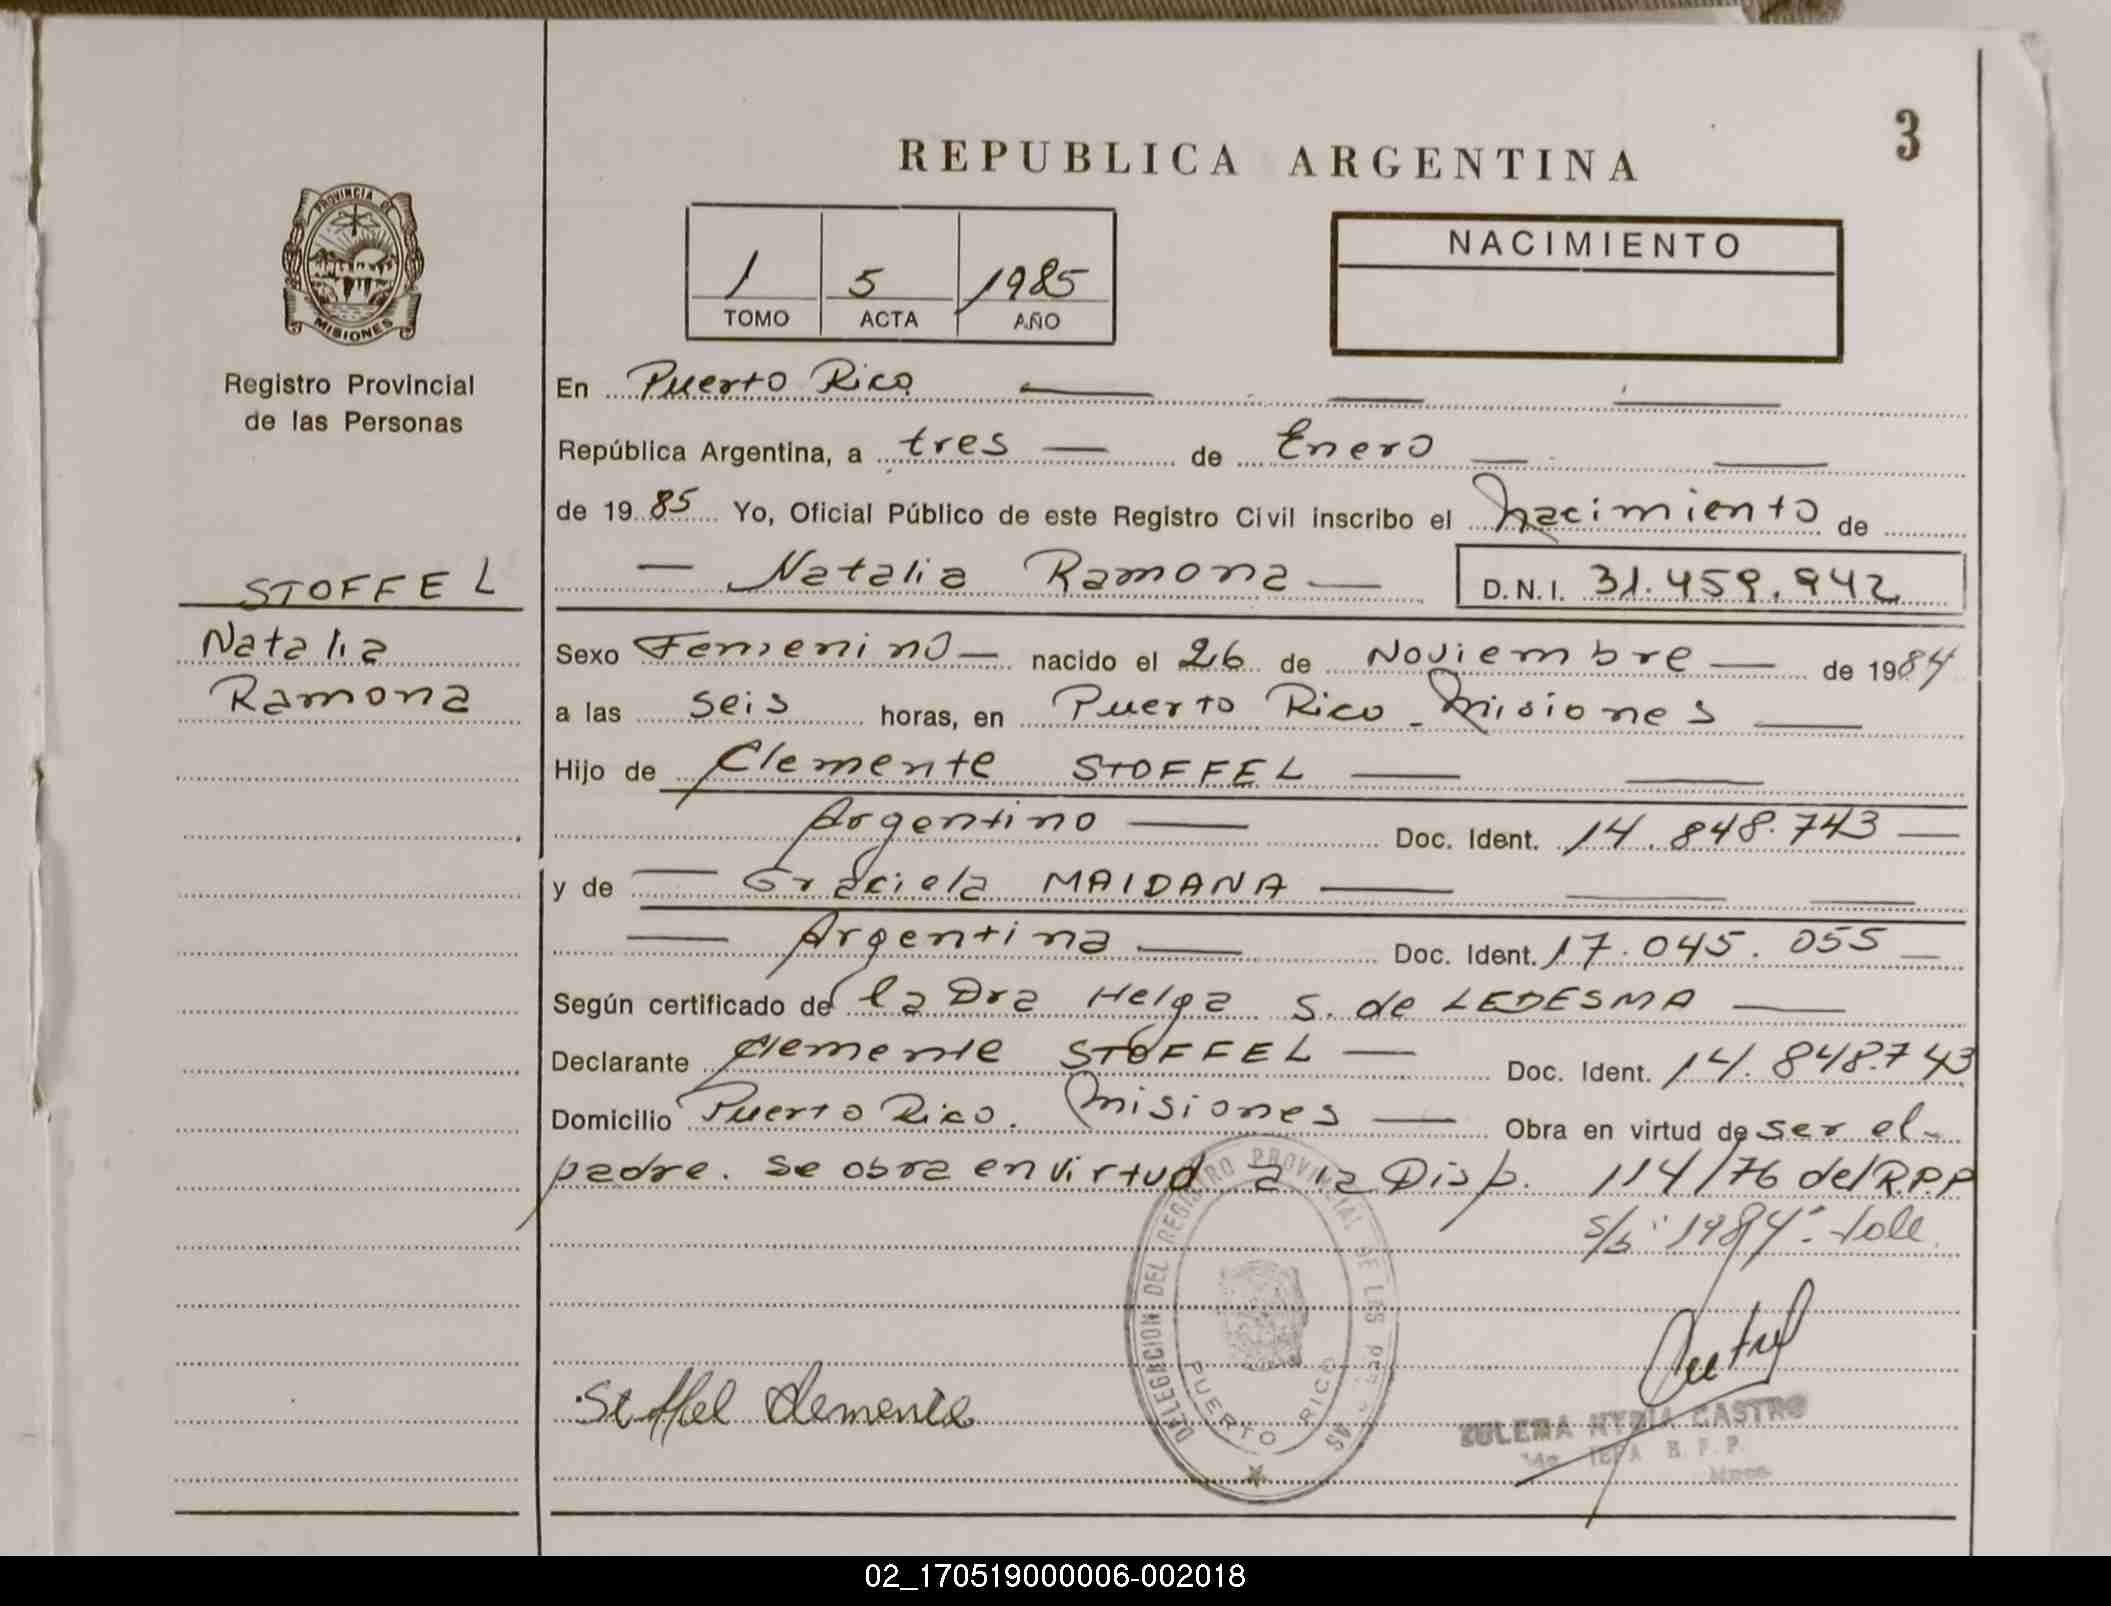 3
REPUBLICA ARGENTINA
PROVINCIA DE
MISIONES
Registro Provincial
de las Personas
1 5 1985
TOMO ACTA AÑO
NACIMIENTO
En Puerto Rico
República Argentina, a tres de Enero
de 1985 Yo, Oficial Público de este Registro Civil inscribo el nacimiento de
Natalia Ramona D.N.I. 31.459.942
STOFFEL
Natalia
Ramona
Sexo Femenino nacido el 26 de Noviembre de 1984
a las seis horas, en Puerto Rico - Misiones
Hijo de Clemente STOFFEL
Argentino Doc. Ident. 14.848.743
y de Graciela MAIDANA
Argentina Doc. Ident. 17.045.055
Según certificado de la Dra Helga S. de LEDESMA
Declarante Clemente STOFFEL Doc. Ident. 14.848.743
Domicilio Puerto Rico. Misiones Obra en virtud de ser el
padre. se obra en virtud a la Disp. 114/76 del R.P.P
1984 Vale
DELEGACION DEL REGISTRO PROVINCIAL DE LAS PERSONAS
PUERTO RICO
Stoffel Clemente
ZULEMA CASTRO
JEFA R. P. P.
02_170519000006-002018